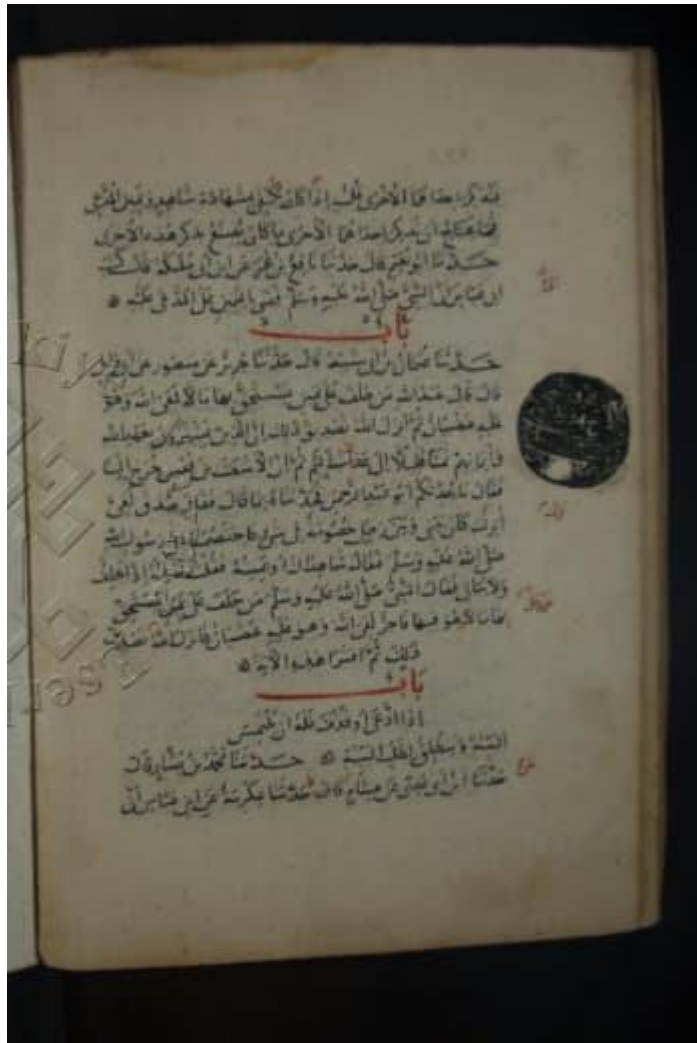 فتذكر إحداهما الأخرى قلت إذا كان يكتفى بشهادة شاهد ويمين المدعي
فما يحتاج أن تذكر إحداهما الأخرى ما كان يصنع بذكر هذه الأخرى
حدثنا أبو نعيم قال حدثنا نافع بن عمر عن ابن أبي مليكة قال كتب
ابن عباس أن النبي صلى الله عليه وسلم قضى باليمين على المدعى عليه
باب
حدثنا عثمان بن أبي شيبة قال حدثنا جرير عن منصور عن أبي وائل
قال قال عبد الله من حلف على يمين يستحق بها مالا لقي الله وهو
عليه غضبان ثم أنزل الله تصديق ذلك إن الذين يشترون بعهد الله
وأيمانهم ثمنا قليلا إلى عذاب أليم ثم إن الأشعث بن قيس خرج إلينا
فقال ما يحدثكم أبو عبد الرحمن فحدثناه بما قال فقال صدق لفي
أنزلت كان بيني وبين رجل خصومة في شيء فاختصمنا إلى رسول الله
صلى الله عليه وسلم فقال شاهداك أو يمينه فقلت له إنه إذا يحلف
ولا يبالي فقال النبي صلى الله عليه وسلم من حلف على يمين يستحق
بها مالا هو فيها فاجر لقي الله وهو عليه غضبان فأنزل الله تصديق
ذلك ثم اقترأ هذه الآية
باب
إذا ادعى أو قذف فله أن يلتمس
البينة وينطلق لطلب البينة حدثنا محمد بن بشار قال
حدثنا ابن أبي عدي عن هشام قال حدثنا عكرمة عن ابن عباس أن